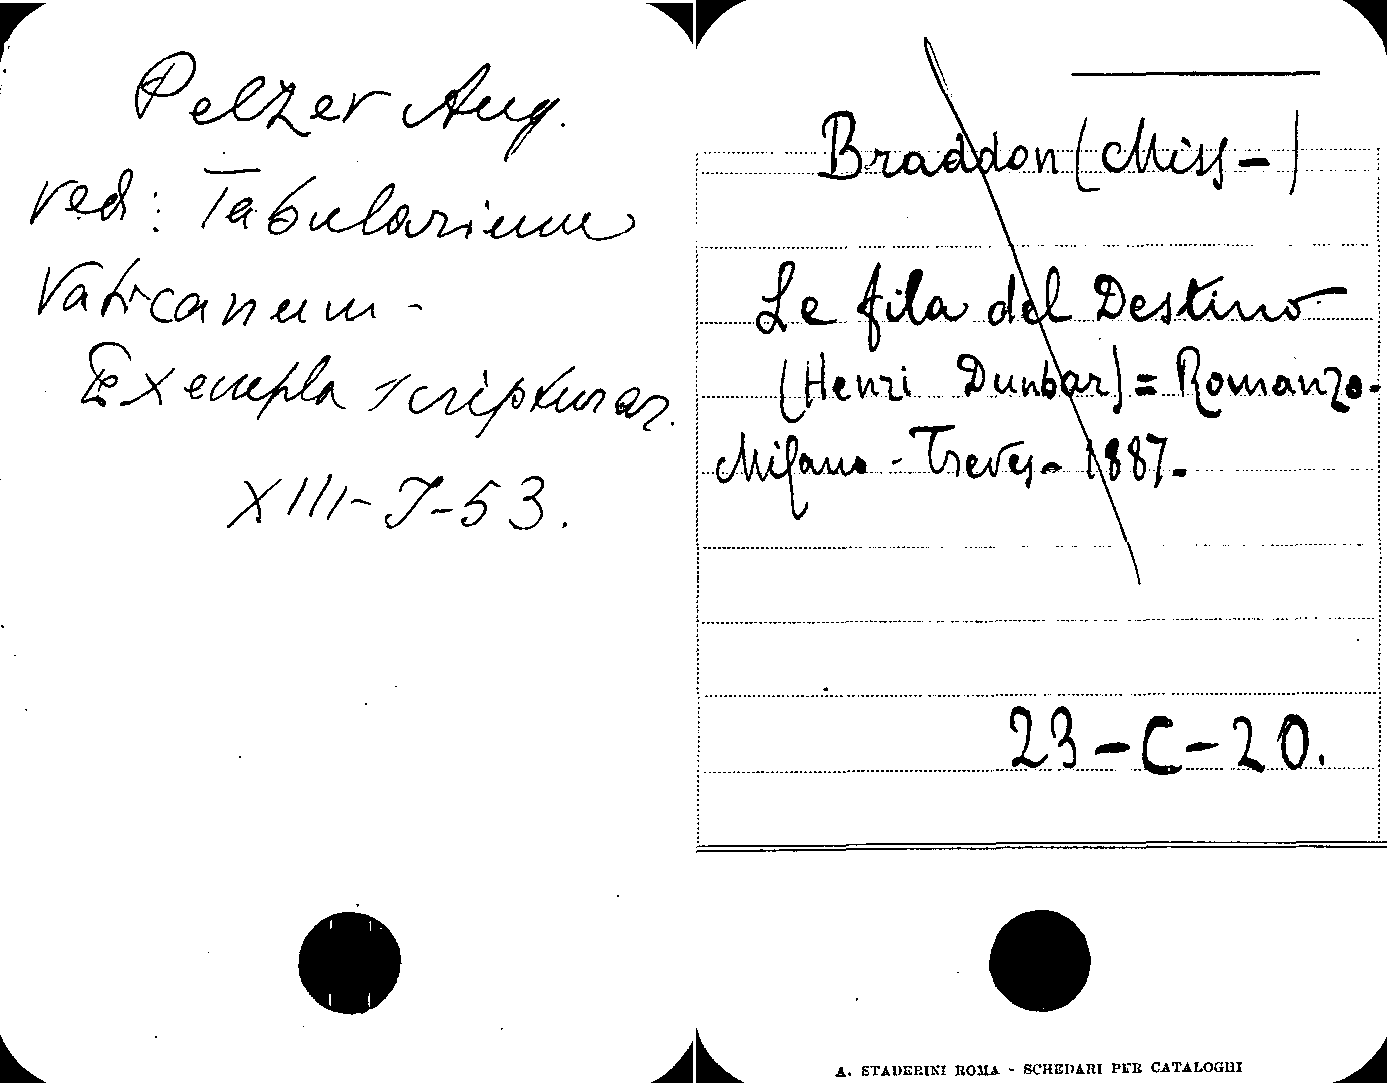 Pelzer Aug.
ved: Tabularium
Vaticanum -
Exempla scripturar.
XIII-J-53.
Braddon (Miss -)
Le fila del Destino
(Henri Dunbar) = Romanzo.
Milano - Treves - 1887.
23-C-20.
A. STADERINI ROMA - SCHEDARI PER CATALOGHI